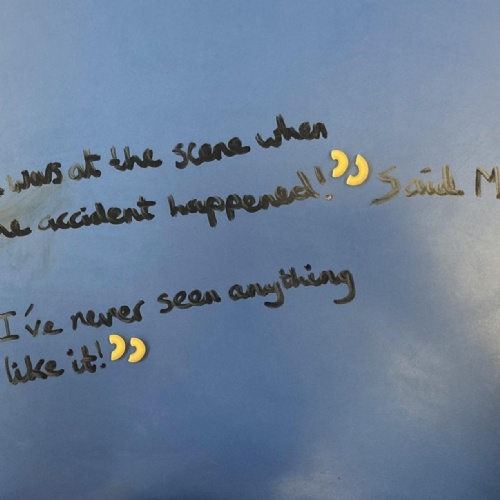 was at the scene when
he accident happened!” Said M
I've never seen anything
like it!”